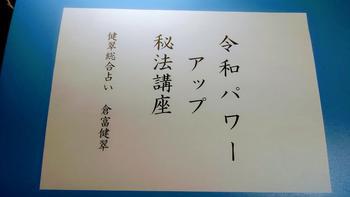 令和パワー
アップ
秘法講座
健翠総合占い　倉富健翠